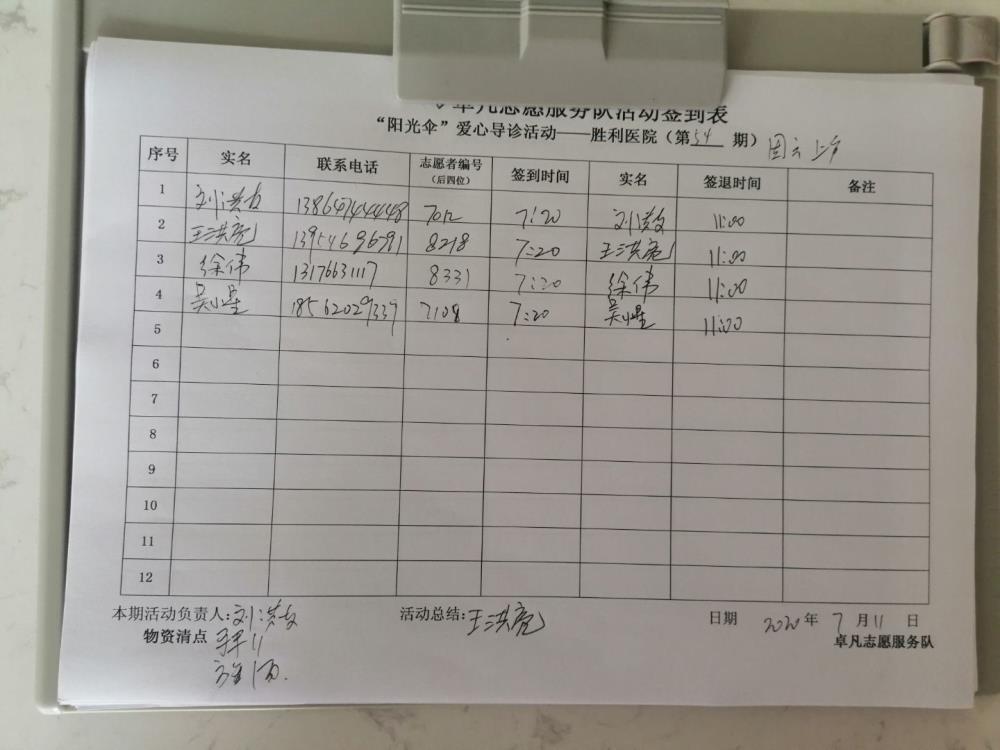 卓凡志愿服务队活动签到表
“阳光伞”爱心导诊活动——胜利医院(第54期)
序号 实名 联系电话 志愿者编号(后四位) 签到时间 实名 签退时间 备注
1 7012 7:20 11:00
2 王洪亮 8218 7:20 王洪亮 11:00
3 徐伟 13176631117 8331 7:20 徐伟 11:00
4 18562029339 7108 7:20 11:00
5
6
7
8
9
10
11
12
本期活动负责人: 活动总结:王洪亮 日期 2020年7月11日
物资清点 卓凡志愿服务队